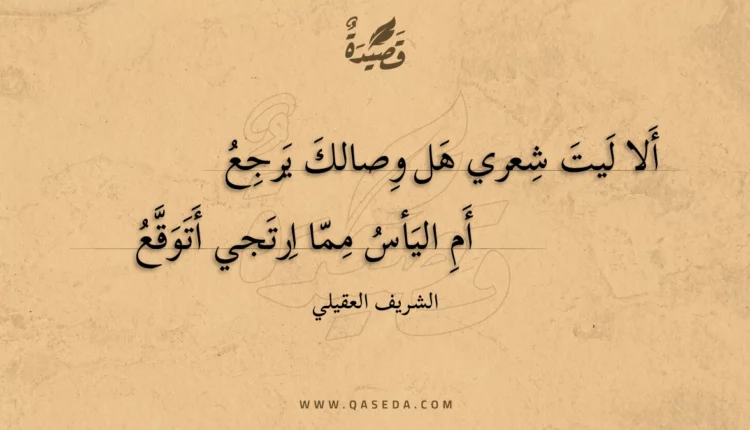 قَصِيْدَةٌ
أَلا لَيتَ شِعري هَل وِصالكَ يَرجِعُ
أَمِ اليَأسُ مِمّا اِرتَجي أَتَوَقَّعُ
الشريف العقيلي
WWW.QASEDA.COM